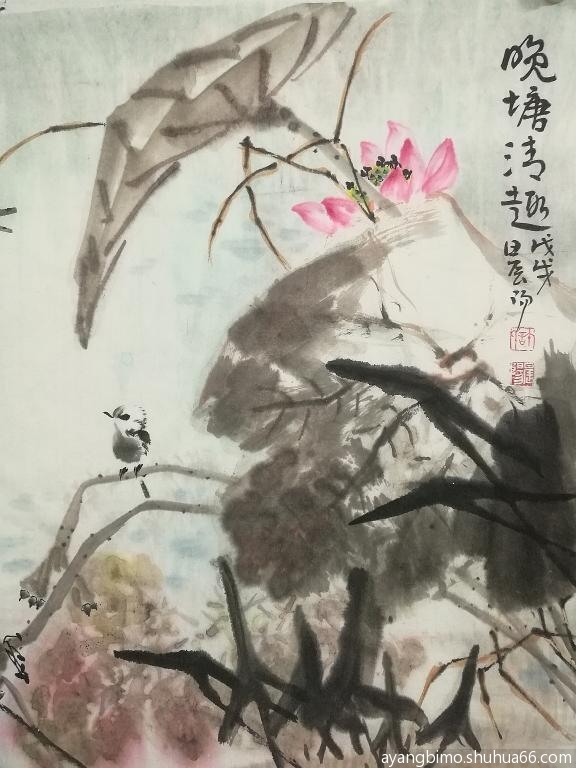 晚塘清趣
戊戌
晨阳
ayangbimo.shuhua66.com